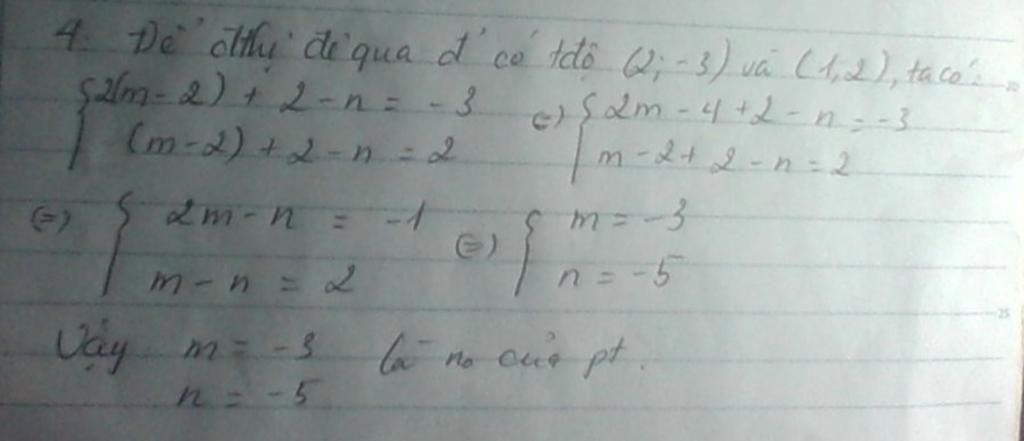 4. Để đthị đi qua đ' có tđộ (2; -3) và (1, 2), ta có:
{ 2(m-2) + 2 - n = -3 (=) { 2m - 4 + 2 - n = -3
(m-2) + 2 - n = 2 m - 2 + 2 - n = 2
(=) { 2m - n = -1 (=) { m = -3
m - n = 2 n = -5
Vậy m = -3 là no của pt.
n = -5